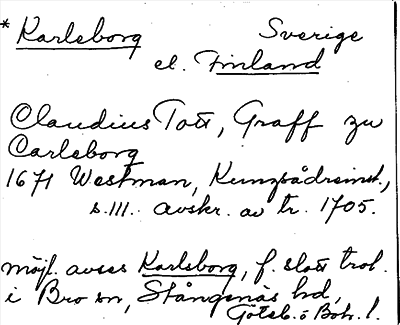 * Karlsborg Sverige
el. Finland
Claudius Tott, Graff zu
Carlsborg
1671 Westman,
s. 111. avskr. av tr. 1705.
möjl. avses Karlsborg, f. slott trol.
i Bro sn, Stångenäs hd,
Göteb. o Boh. l.